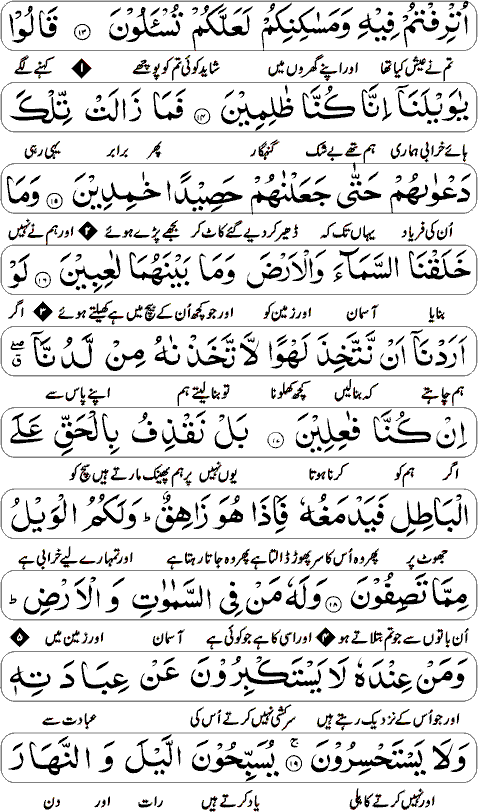 اُتْرِفْتُمْ فِيْهِ وَمَسٰكِنِكُمْ لَعَلَّكُمْ تُسْـَٔلُوْنَ ۱۳ قَالُوْا
تم نے عیش کیا تھا اور اپنے گھروں میں شاید کوئی تم کو پوچھے ۱ کہنے لگے
يٰوَيْلَنَاۤ اِنَّا كُنَّا ظٰلِمِيْنَ ۱۴ فَمَا زَالَتْ تِّلْكَ
ہائے خرابی ہماری ہم تھے بے شک گنہگار پھر برابر یہی رہی
دَعْوٰىهُمْ حَتّٰى جَعَلْنٰهُمْ حَصِيْدًا خٰمِدِيْنَ ۱۵ وَمَا
اُن کی فریاد یہاں تک کہ ڈھیر کر دیے گئے کاٹ کر بجھے پڑے ہوئے ۲ اور ہم نے نہیں
خَلَقْنَا السَّمَآءَ وَالْاَرْضَ وَمَا بَيْنَهُمَا لٰعِبِيْنَ ۱۶ لَوْ
بنایا آسمان اور زمین کو اور جو کچھ اُن کے بیچ میں ہے کھیلتے ہوئے ۳ اگر
اَرَدْنَاۤ اَنْ نَّتَّخِذَ لَهْوًا لَّاتَّخَذْنٰهُ مِنْ لَّدُنَّاۤ ۖق
ہم چاہتے کہ بنا لیں کچھ کھلونا تو بنا لیتے ہم اپنے پاس سے
اِنْ كُنَّا فٰعِلِيْنَ ۱۷ بَلْ نَقْذِفُ بِالْحَقِّ عَلَى
اگر ہم کو کرنا ہوتا یوں نہیں پر ہم پھینک مارتے ہیں سچ کو
الْبَاطِلِ فَيَدْمَغُهٗ فَاِذَا هُوَ زَاهِقٌ ؕ وَلَكُمُ الْوَيْلُ
جھوٹ پر پھر وہ اُس کا سر پھوڑ ڈالتا ہے پھر وہ جاتا رہتا ہے اور تمہارے لیے خرابی ہے
مِمَّا تَصِفُوْنَ ۱۸ وَلَهٗ مَنْ فِى السَّمٰوٰتِ وَ الْاَرْضِ ؕ
اُن باتوں سے جو تم بتلاتے ہو ۴ اور اسی کا ہے جو کوئی ہے آسمان اور زمین میں ۵
وَمَنْ عِنْدَهٗ لَا يَسْتَكْبِرُوْنَ عَنْ عِبَادَتِهٖ
اور جو اُس کے نزدیک رہتے ہیں سرکشی نہیں کرتے اُس کی عبادت سے
وَلَا يَسْتَحْسِرُوْنَ ۚ ۱۹ يُسَبِّحُوْنَ الَّيْلَ وَ النَّهَارَ
اور نہیں کرتے کاہلی یاد کرتے ہیں رات اور دن